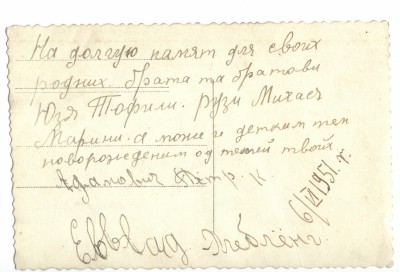 На долгую памят для своих
родних брата та братови
Юзя Тофили. Рузи Михася
Марини. а може и деткам теп
новорожденим од тетей твоих
Адамович Петр. К
6/VI 1951. г.